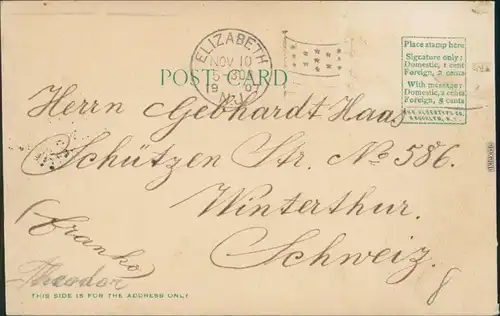 ELIZABETH
NOV 10
5-30
1907
N.J.
POST CARD
Place stamp here
Signature only:
Domestic, 1 cent
Foreign, 2 cents
With message:
Domestic, 2 cents
Foreign, 5 cents
THE ALBERTYPE CO.
BROOKLYN, N.Y.
Herrn Gebhardt Haas
Schützen Str. No 586.
Winterthur.
Schweiz.
(Franko)
Theodor
8
THIS SIDE IS FOR THE ADDRESS ONLY